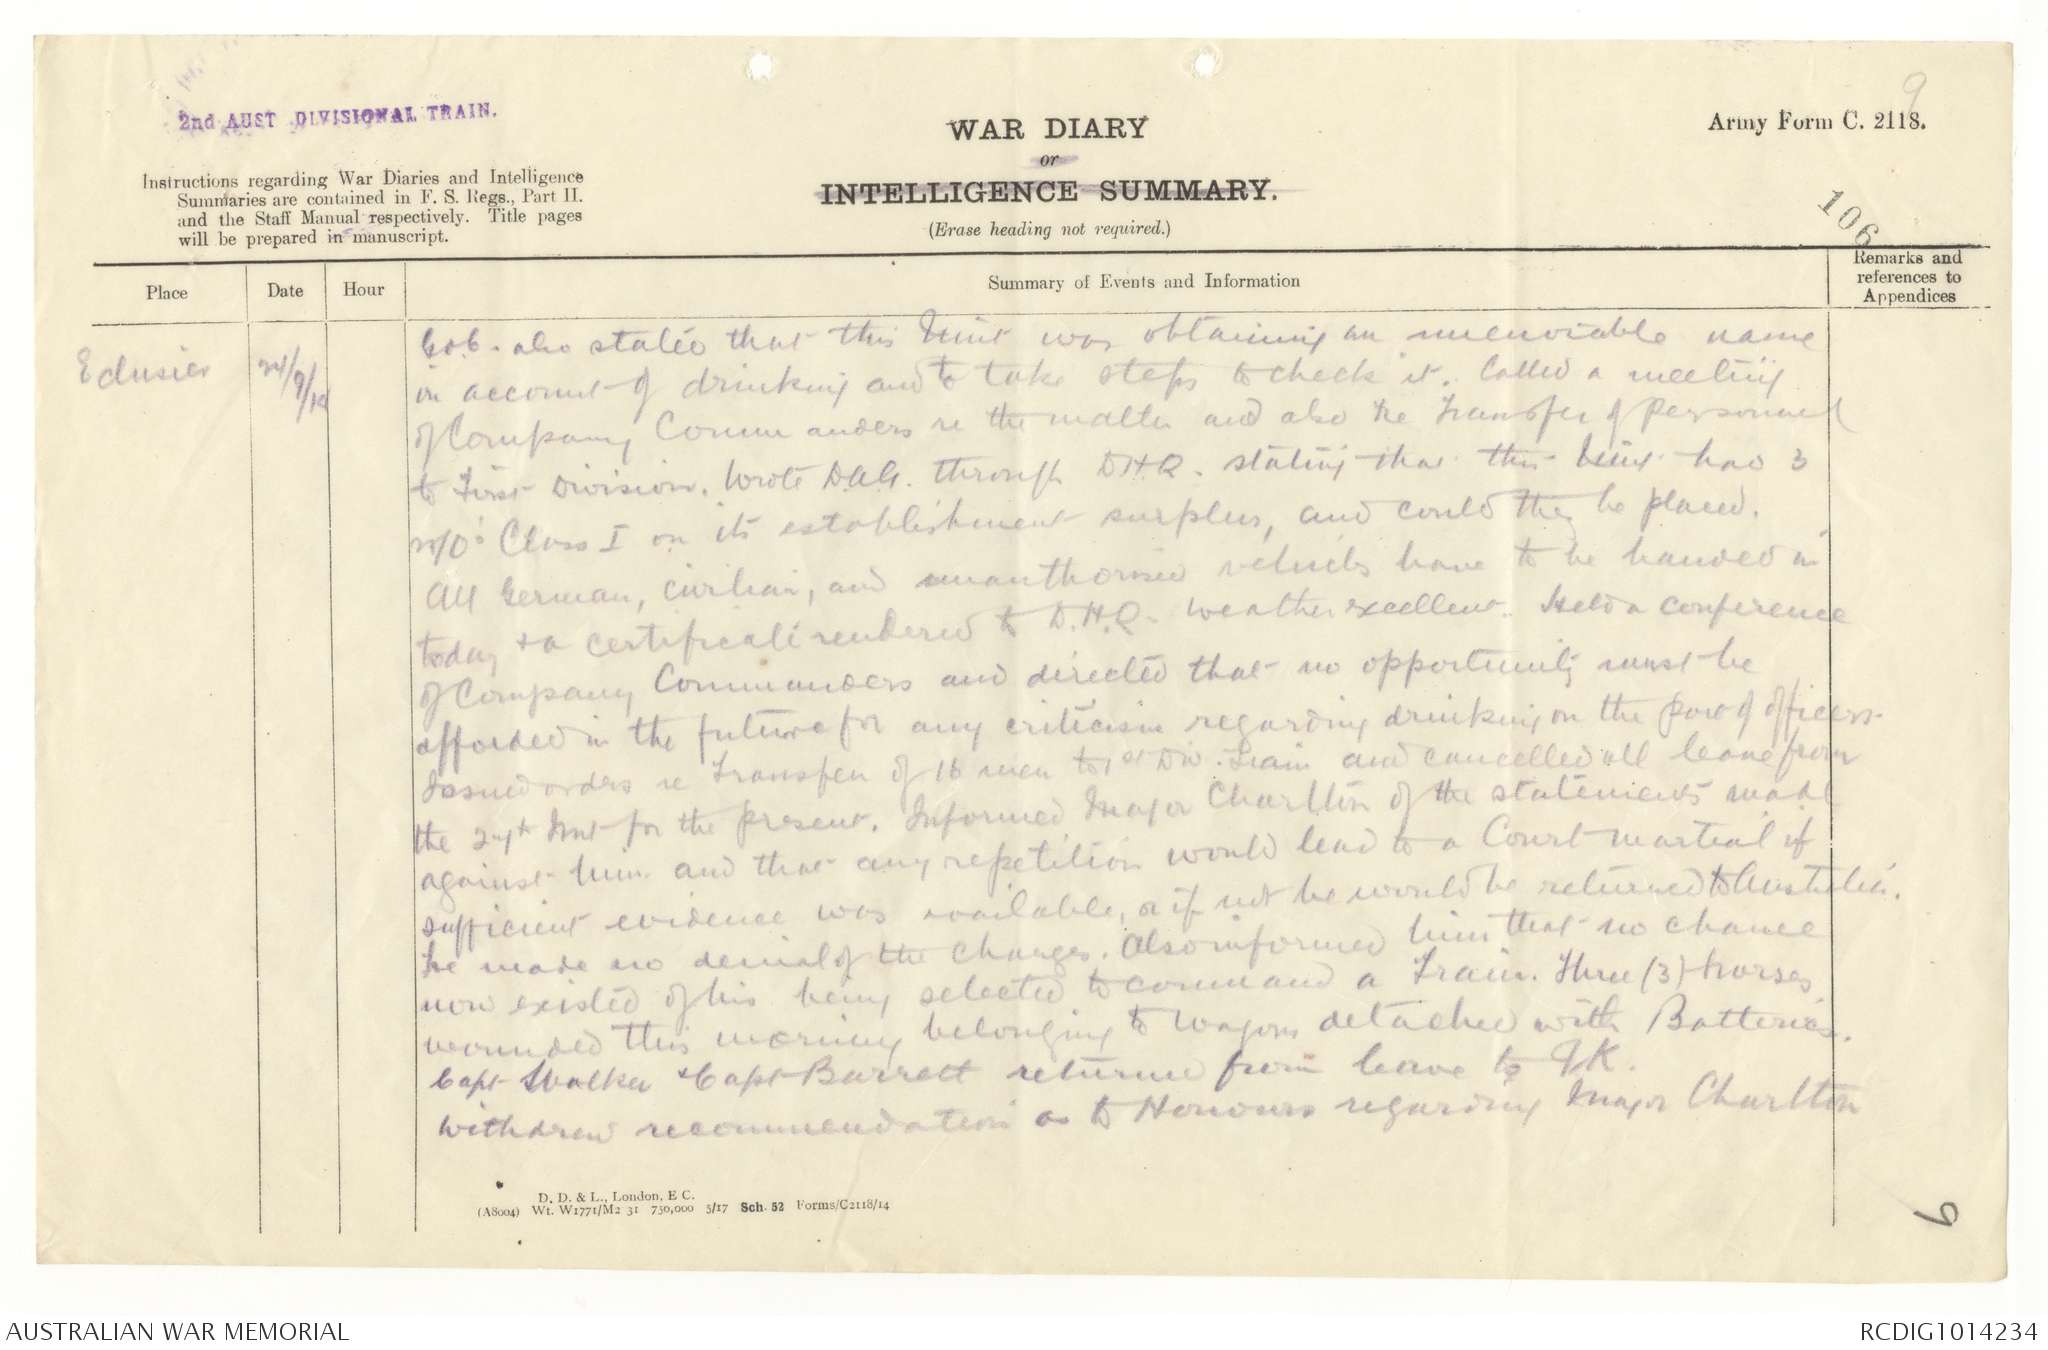 9
2nd AUST DIVISIONAL TRAIN.
WAR DIARY
or
INTELLIGENCE SUMMARY.
(Erase heading not required.)
Army Form C. 2118.
Instructions regarding War Diaries and Intelligence
Summaries are contained in F. S. Regs., Part II.
and the Staff Manual respectively. Title pages
will be prepared in manuscript.
106
Place
Date
Hour
Summary of Events and Information
Remarks and
references to
Appendices
Eclusier
24/9/18
G.O.C. also stated that this Unit was obtaining an unenviable name
on account of drinking and to take steps to check it. Called a meeting
of Company Commanders re the matter and also the Transfer of personnel
to First Division. Wrote D.A.G. through D.H.Q. stating that this Unit had 3
W/O's Class I on its establishment surplus, and could they be placed.
All German, civilian, and unauthorised vehicles have to be handed in
today & a certificate rendered to D.H.Q. Weather excellent. Held a conference
of Company Commanders and directed that no opportunity must be
afforded in the future for any criticism regarding drinking on the part of officers
Issued orders re Transfer of 16 men to 1st Div. Train and cancelled all leave from
the 27th Inst for the present. Informed Major Charlton of the statements made
against him and that any repetition would lead to a Court martial if
sufficient evidence was available, or if not he would be returned to Australia.
He made no denial of the charges. Also informed him that no chance
now existed of his being selected to command a Train. Three (3) horses
wounded this morning belonging to wagons detached with Batteries.
Capt Walker & Capt Barrett returned from leave to UK.
Withdrew recommendation as to Honours regarding Major Charlton
D. D. & L., London, E C.
(A8004) Wt. W1771/M2 31 750,000 5/17 Sch. 52 Forms/C2118/14
9
AUSTRALIAN WAR MEMORIAL
RCDIG1014234